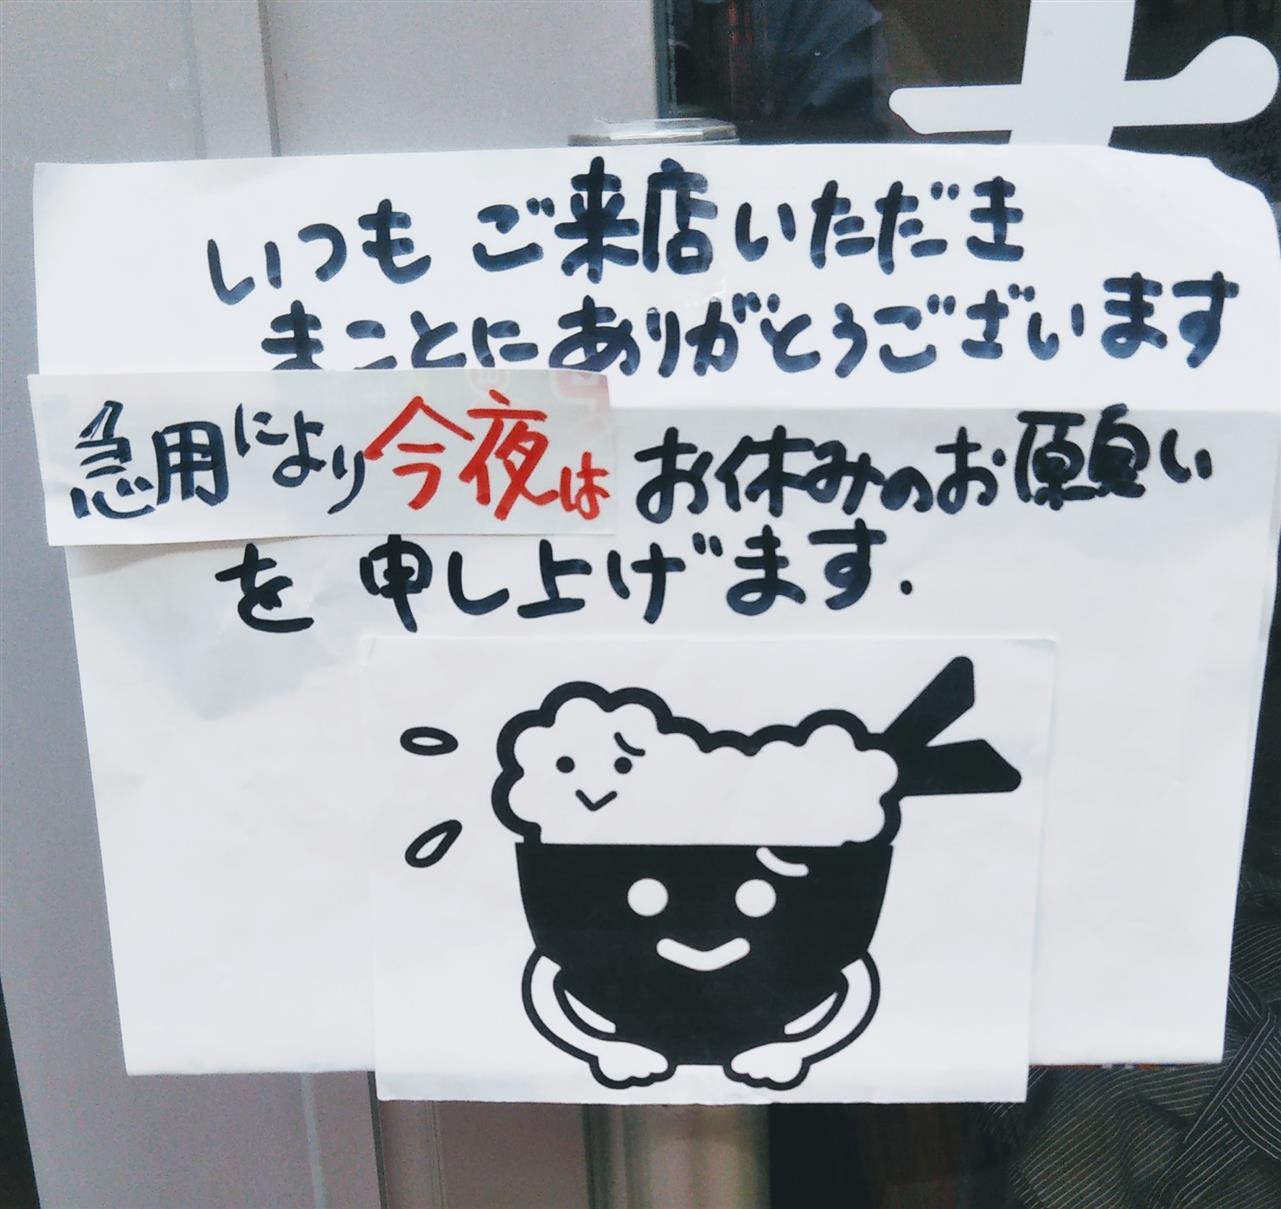 いつもご来店いただき
まことにありがとうございます
急用により今夜はお休みのお願い
を申し上げます.